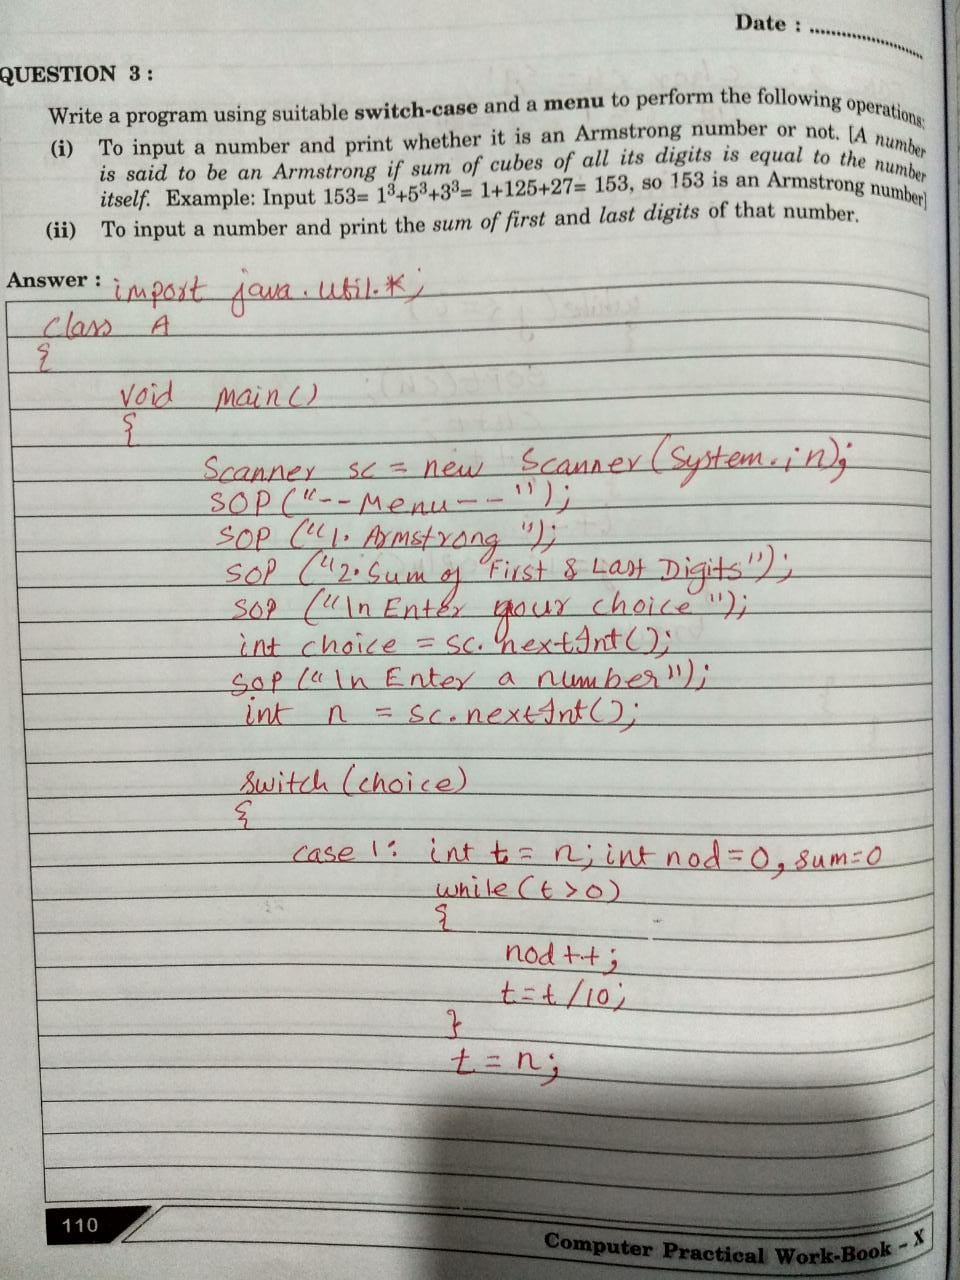 Date : ..................
QUESTION 3 :
Write a program using suitable switch-case and a menu to perform the following operations:
(i) To input a number and print whether it is an Armstrong number or not. [A number
is said to be an Armstrong if sum of cubes of all its digits is equal to the number
itself. Example: Input 153= 1³+5³+3³= 1+125+27= 153, so 153 is an Armstrong number]
(ii) To input a number and print the sum of first and last digits of that number.
Answer : import java.util.*;
class A
{
void main()
{
Scanner sc = new Scanner(System.in);
SOP ("--Menu--");
SOP ("1. Armstrong ");
SOP ("2. Sum of First & Last Digits");
SOP ("\n Enter your choice ");
int choice = sc.nextInt();
SOP ("\n Enter a number");
int n = sc.nextInt();
switch (choice)
{
case 1: int t = n; int nod=0, sum=0
while (t>0)
{
nod++;
t=t/10;
}
t = n;
110
Computer Practical Work-Book - X